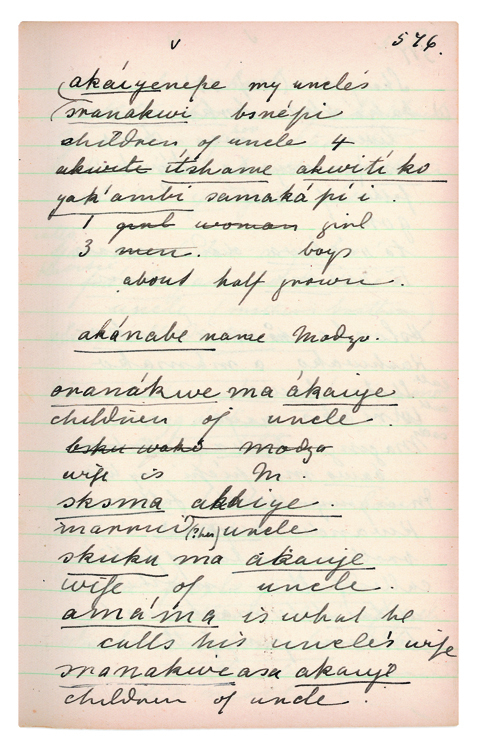 v 576.
akáiyenepe my uncle's
sranakwi bsnépi
children of uncle 4
akwiti itshame akwití ko
yak'ambi samaká pí i.
1 girl woman girl
3 men. boys
about half grown.
akánabe name Modzo.
sranákwe ma ákaiye
children of uncle.
bsku wakó Modzo
wife is M.
sksma akaiye.
married (?her) uncle
skuku ma akaiye
wife of uncle.
amáma is what he
calls his uncle's wife
sranakwe asa akaiye
children of uncle.